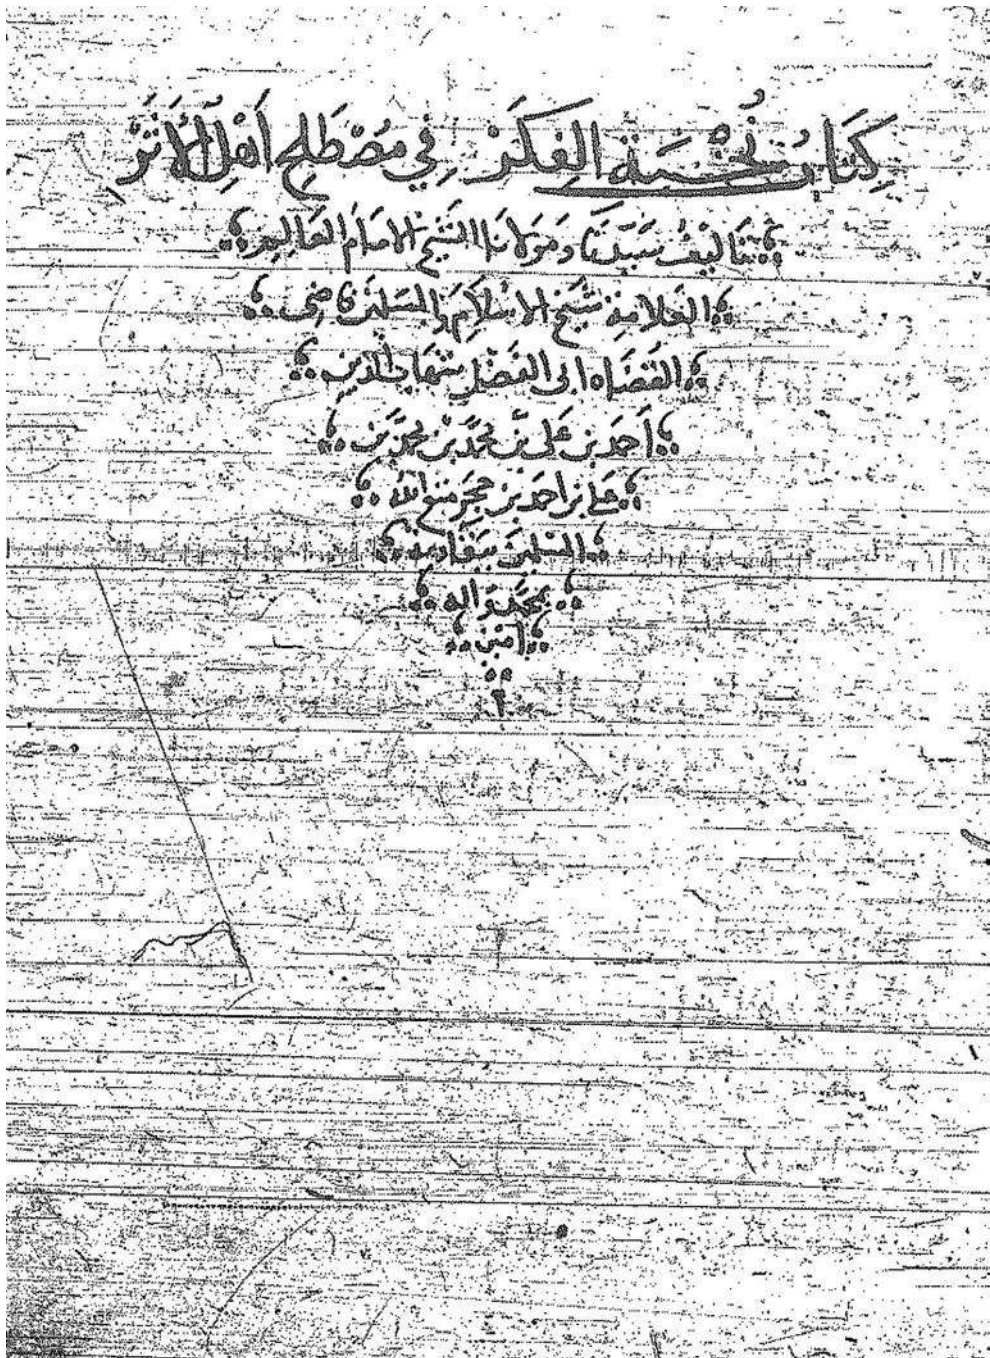 كِتَابُ نُخْبَةِ الفِكَرْ فِي مُصْطَلِحِ اَهْلِ الْاَثَرْ
تَالِيفُ سَيِّدِنَا وَمَوْلَانَا الشَّيْخِ الامَامِ العَالِمِ
العَلامَةِ شَيْخِ الاسْلَامِ وَالمسلمِيْنَ قاضِى
القُضَاه ابى الفَضْلِ شهَابِ الدّينِ
اَحمَدَ بن عَلى بْنِ محمَّد بْن محمَّد بن
عَلي بْن احمَد بْن حجَر متع الله
المسْلِمِينَ بِبَقَاءِهِ
بمحَمَّدٍ وَآلِهِ
آمِين